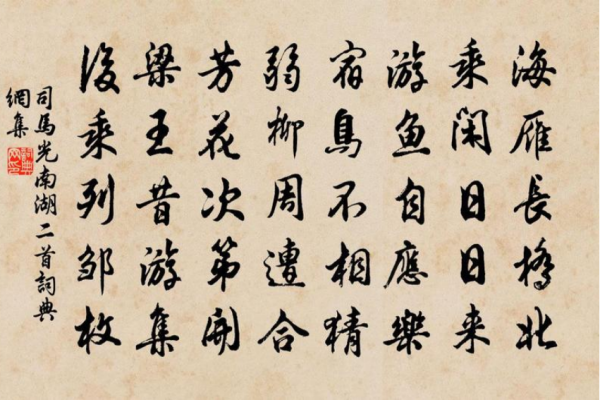 海雁長橋北
乘閑日日来
游魚自應樂
宿鳥不相猜
弱柳周遭合
芳花次第開
梁王昔游集
後乘列邹枚
司馬光南湖二首詞典
網集